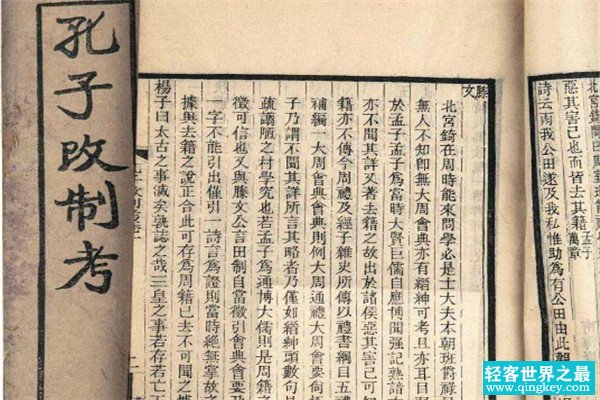 孔子改制考
北宮錡問曰周室班爵祿
惡其害己也而皆去其籍孟子萬章
詩云雨我公田遂及我私惟助為有公田由此觀
滕文
北宮錡在周時能來問學必是士大夫本朝班爵祿
無人不知卽無大周會典亦有縉紳可考且亦耳目
於孟子孟子為當時大賢巨儒自應博聞強記熟諳
亦不聞其詳又著去籍之故出於諸侯惡其害己可知
籍亦不傳今周禮及經子雜史所傳以禮書綱目五禮
補編一大周會典會典則例大周通禮大周會要何
子乃謂不聞其詳所言其略者乃僅如縉紳頭數句
疏譾陋之村學究也若孟子為通博大儒則是周籍
徵可信也又與滕文公言田制自當徵引會典會要乃
一字不能引出僅引一詩言為證則當時絕無掌故之
據與去籍之說正合此可存為周籍已去不可聞之據
楊子曰太古之事滅矣孰誌之哉三皇之事若存若亡五
轻客世界之最
www.qingkey.com